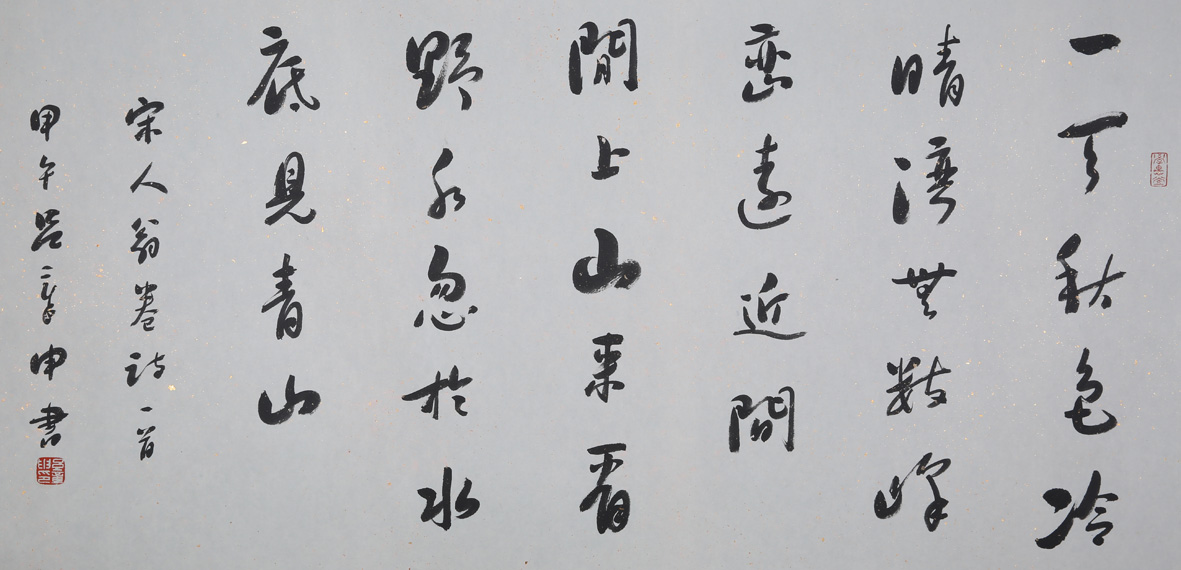 一天秋色冷
晴灣無數峰
巒遠近間
閒上山來看
野水忽於水
底見青山
宋人翁卷詩一首
甲午呂章申書